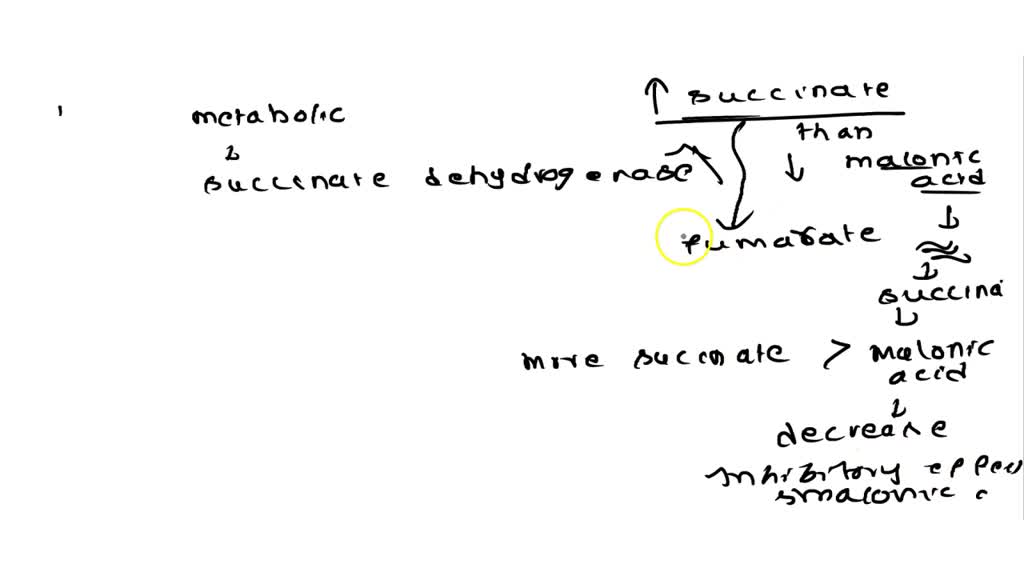 ↑ succinate
metabolic
than
↓ malonic
acid
succinate dehydrogenase
fumarate
succina
more succinate > malonic
acid
decrease
inhibitory effec
malonic